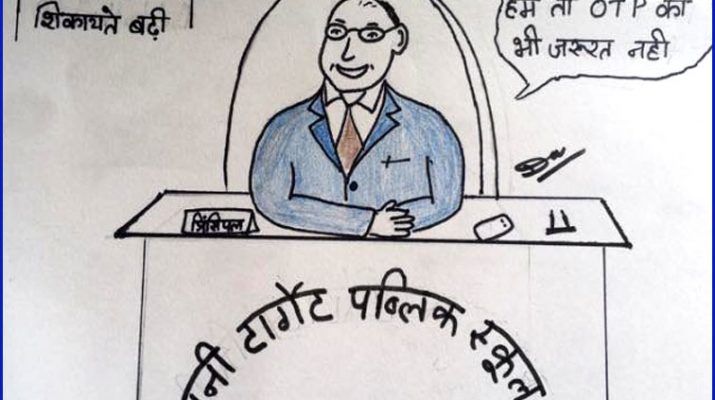 शिकायते बढ़ी
हमे तो OTP की
भी जरूरत नही
प्रिंसिपल
टार्गेट पब्लिक स्कूल